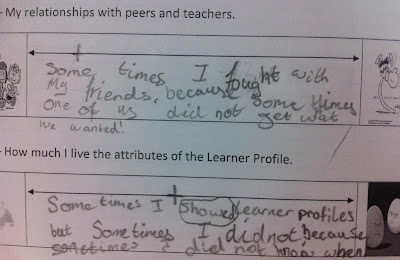 - My relationships with peers and teachers.
Some times I fought with
My friends, because some times
one of us did not get wat
we wanted!
- How much I live the attributes of the Learner Profile.
Sometimes I showed learner profiles
but Sometimes I did not because
I did not know when